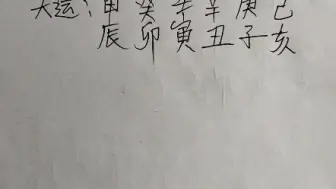 大运：甲癸壬辛庚己
辰卯寅丑子亥